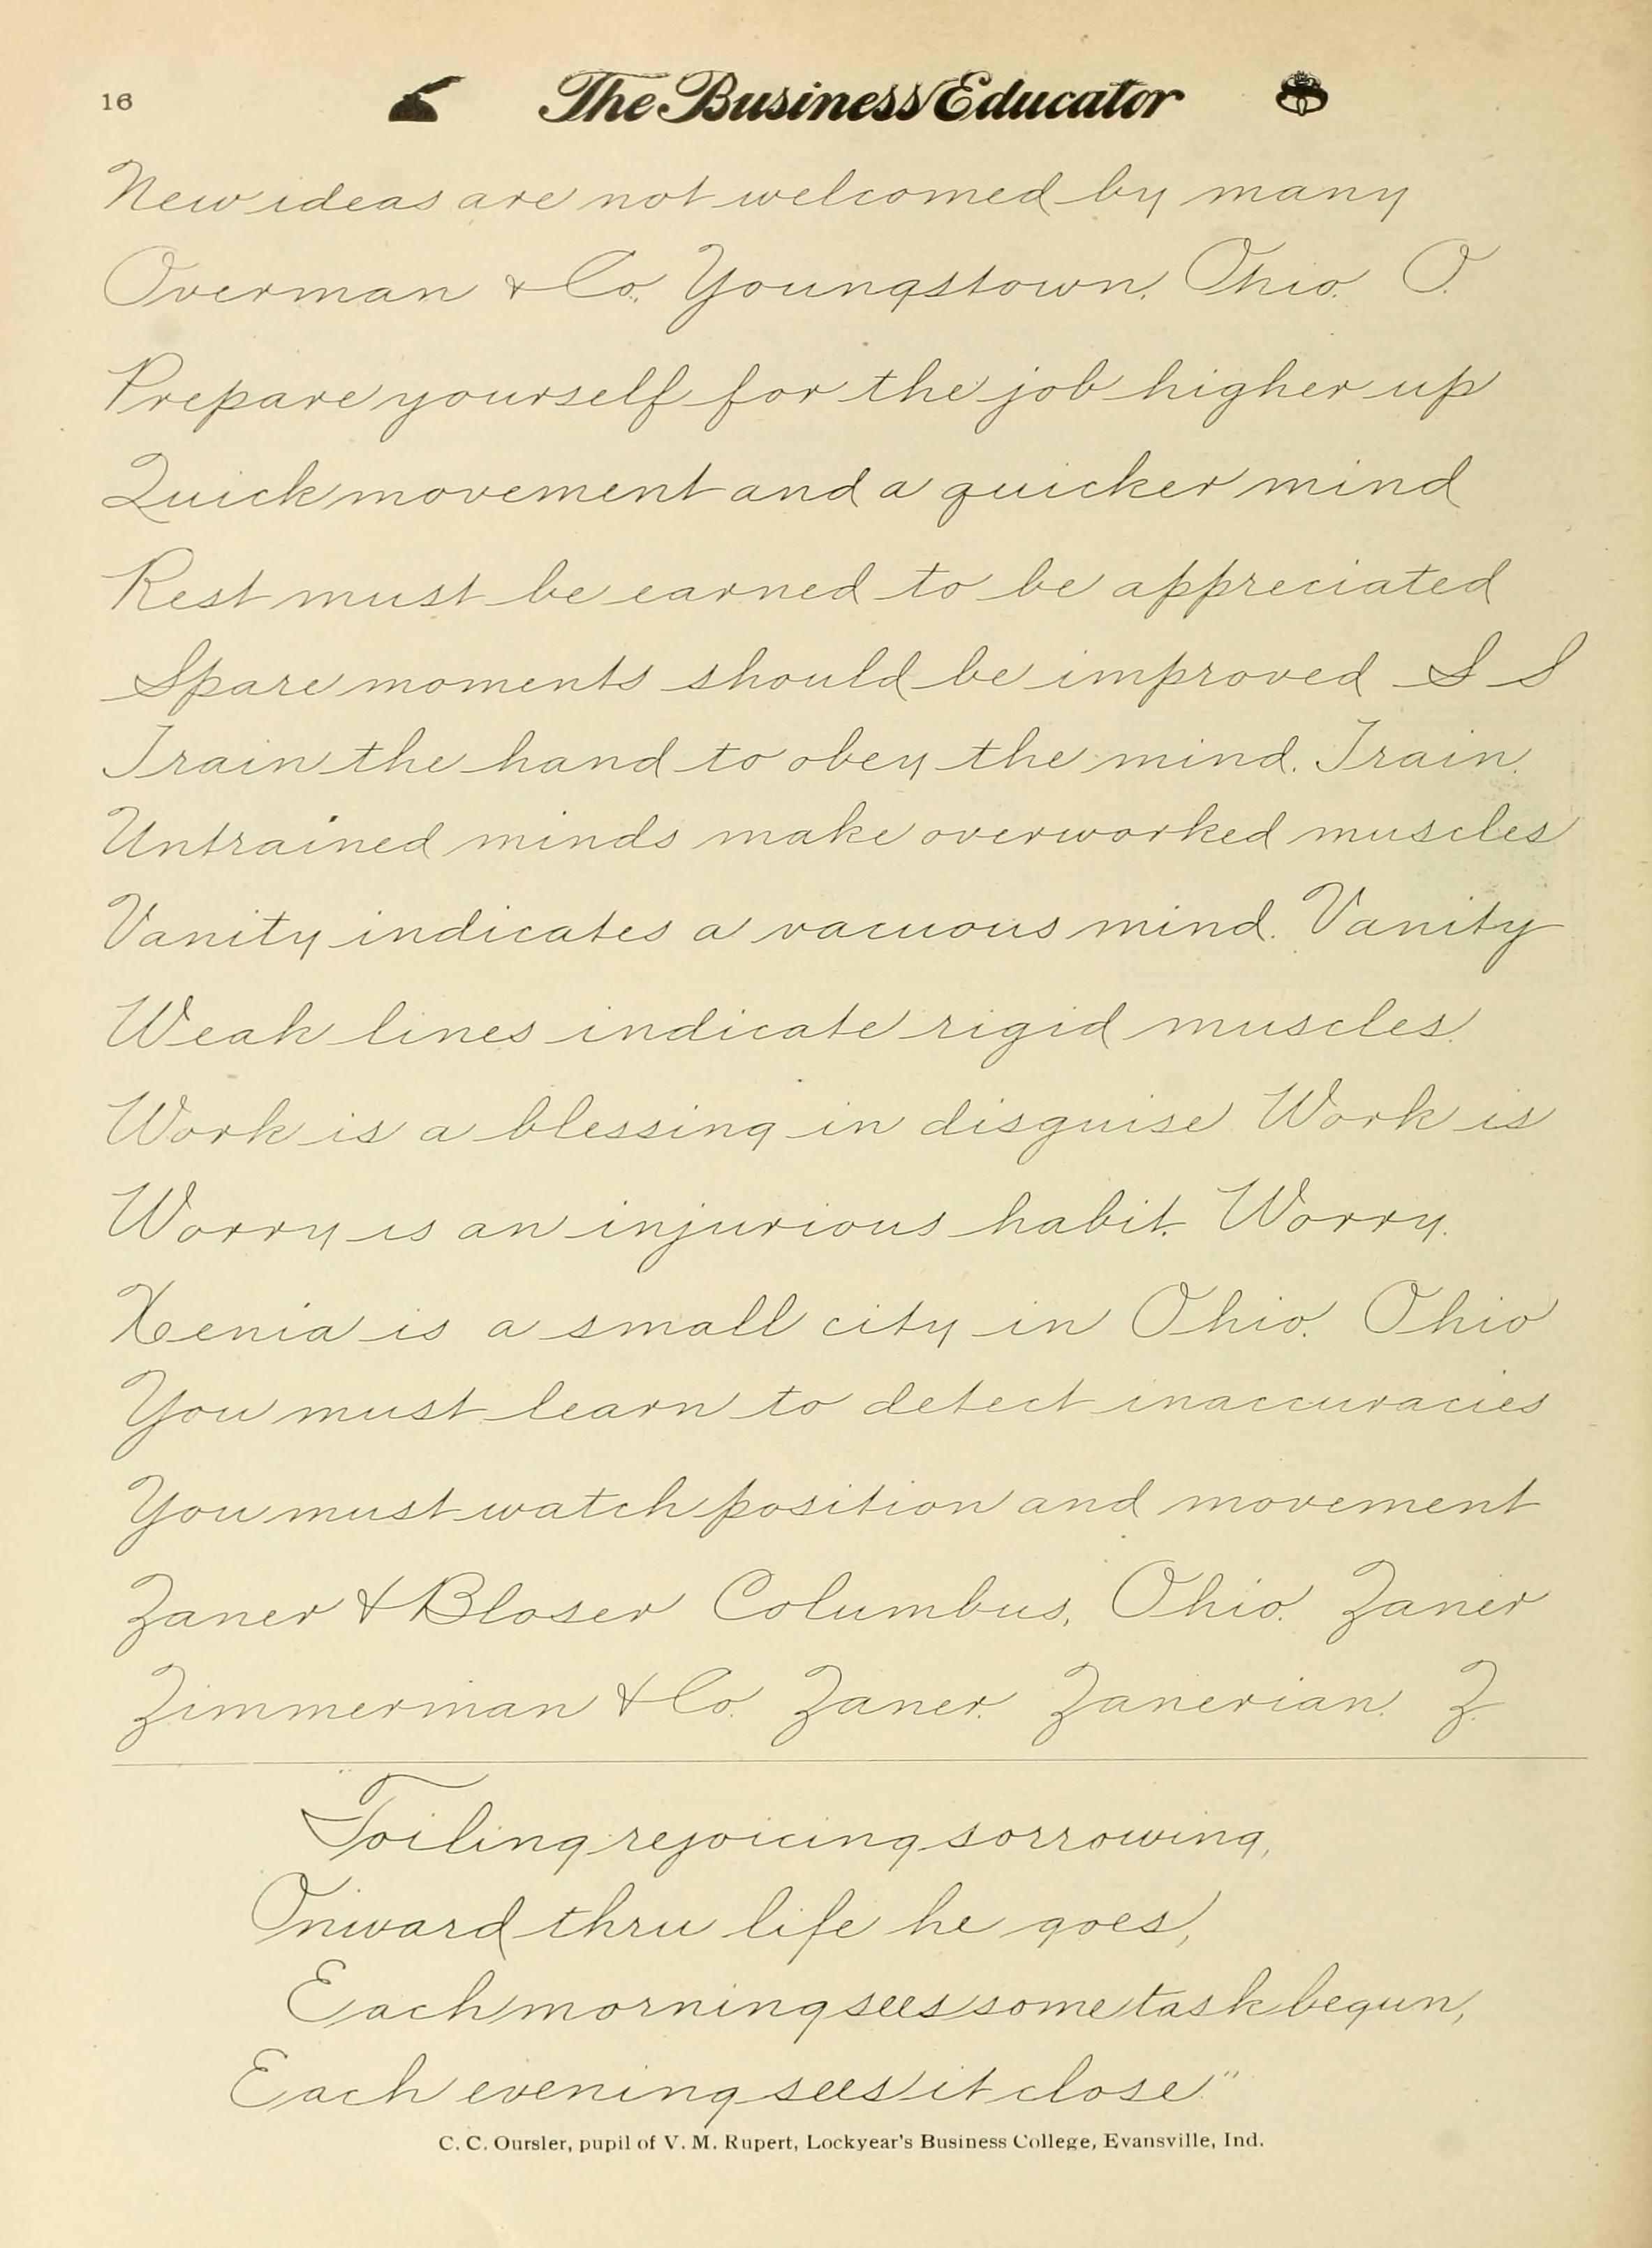 16
The Business Educator
New ideas are not welcomed by many
Overman & Co. Youngstown, Ohio. O.
Prepare yourself for the job higher up
Quick movement and a quicker mind
Rest must be earned to be appreciated
Spare moments should be improved S S
Train the hand to obey the mind. Train.
Untrained minds make overworked muscles
Vanity indicates a vacuous mind. Vanity
Weak lines indicate rigid muscles.
Work is a blessing in disguise Work is
Worry is an injurious habit. Worry.
Xenia is a small city in Ohio. Ohio
You must learn to detect inaccuracies
You must watch position and movement
Zaner & Bloser Columbus, Ohio. Zaner
Zimmerman & Co. Zaner. Zanerian. Z.
"Toiling rejoicing sorrowing,
Onward thru life he goes,
Each morning sees some task begun,
Each evening sees it close."
C. C. Oursler, pupil of V. M. Rupert, Lockyear's Business College, Evansville, Ind.